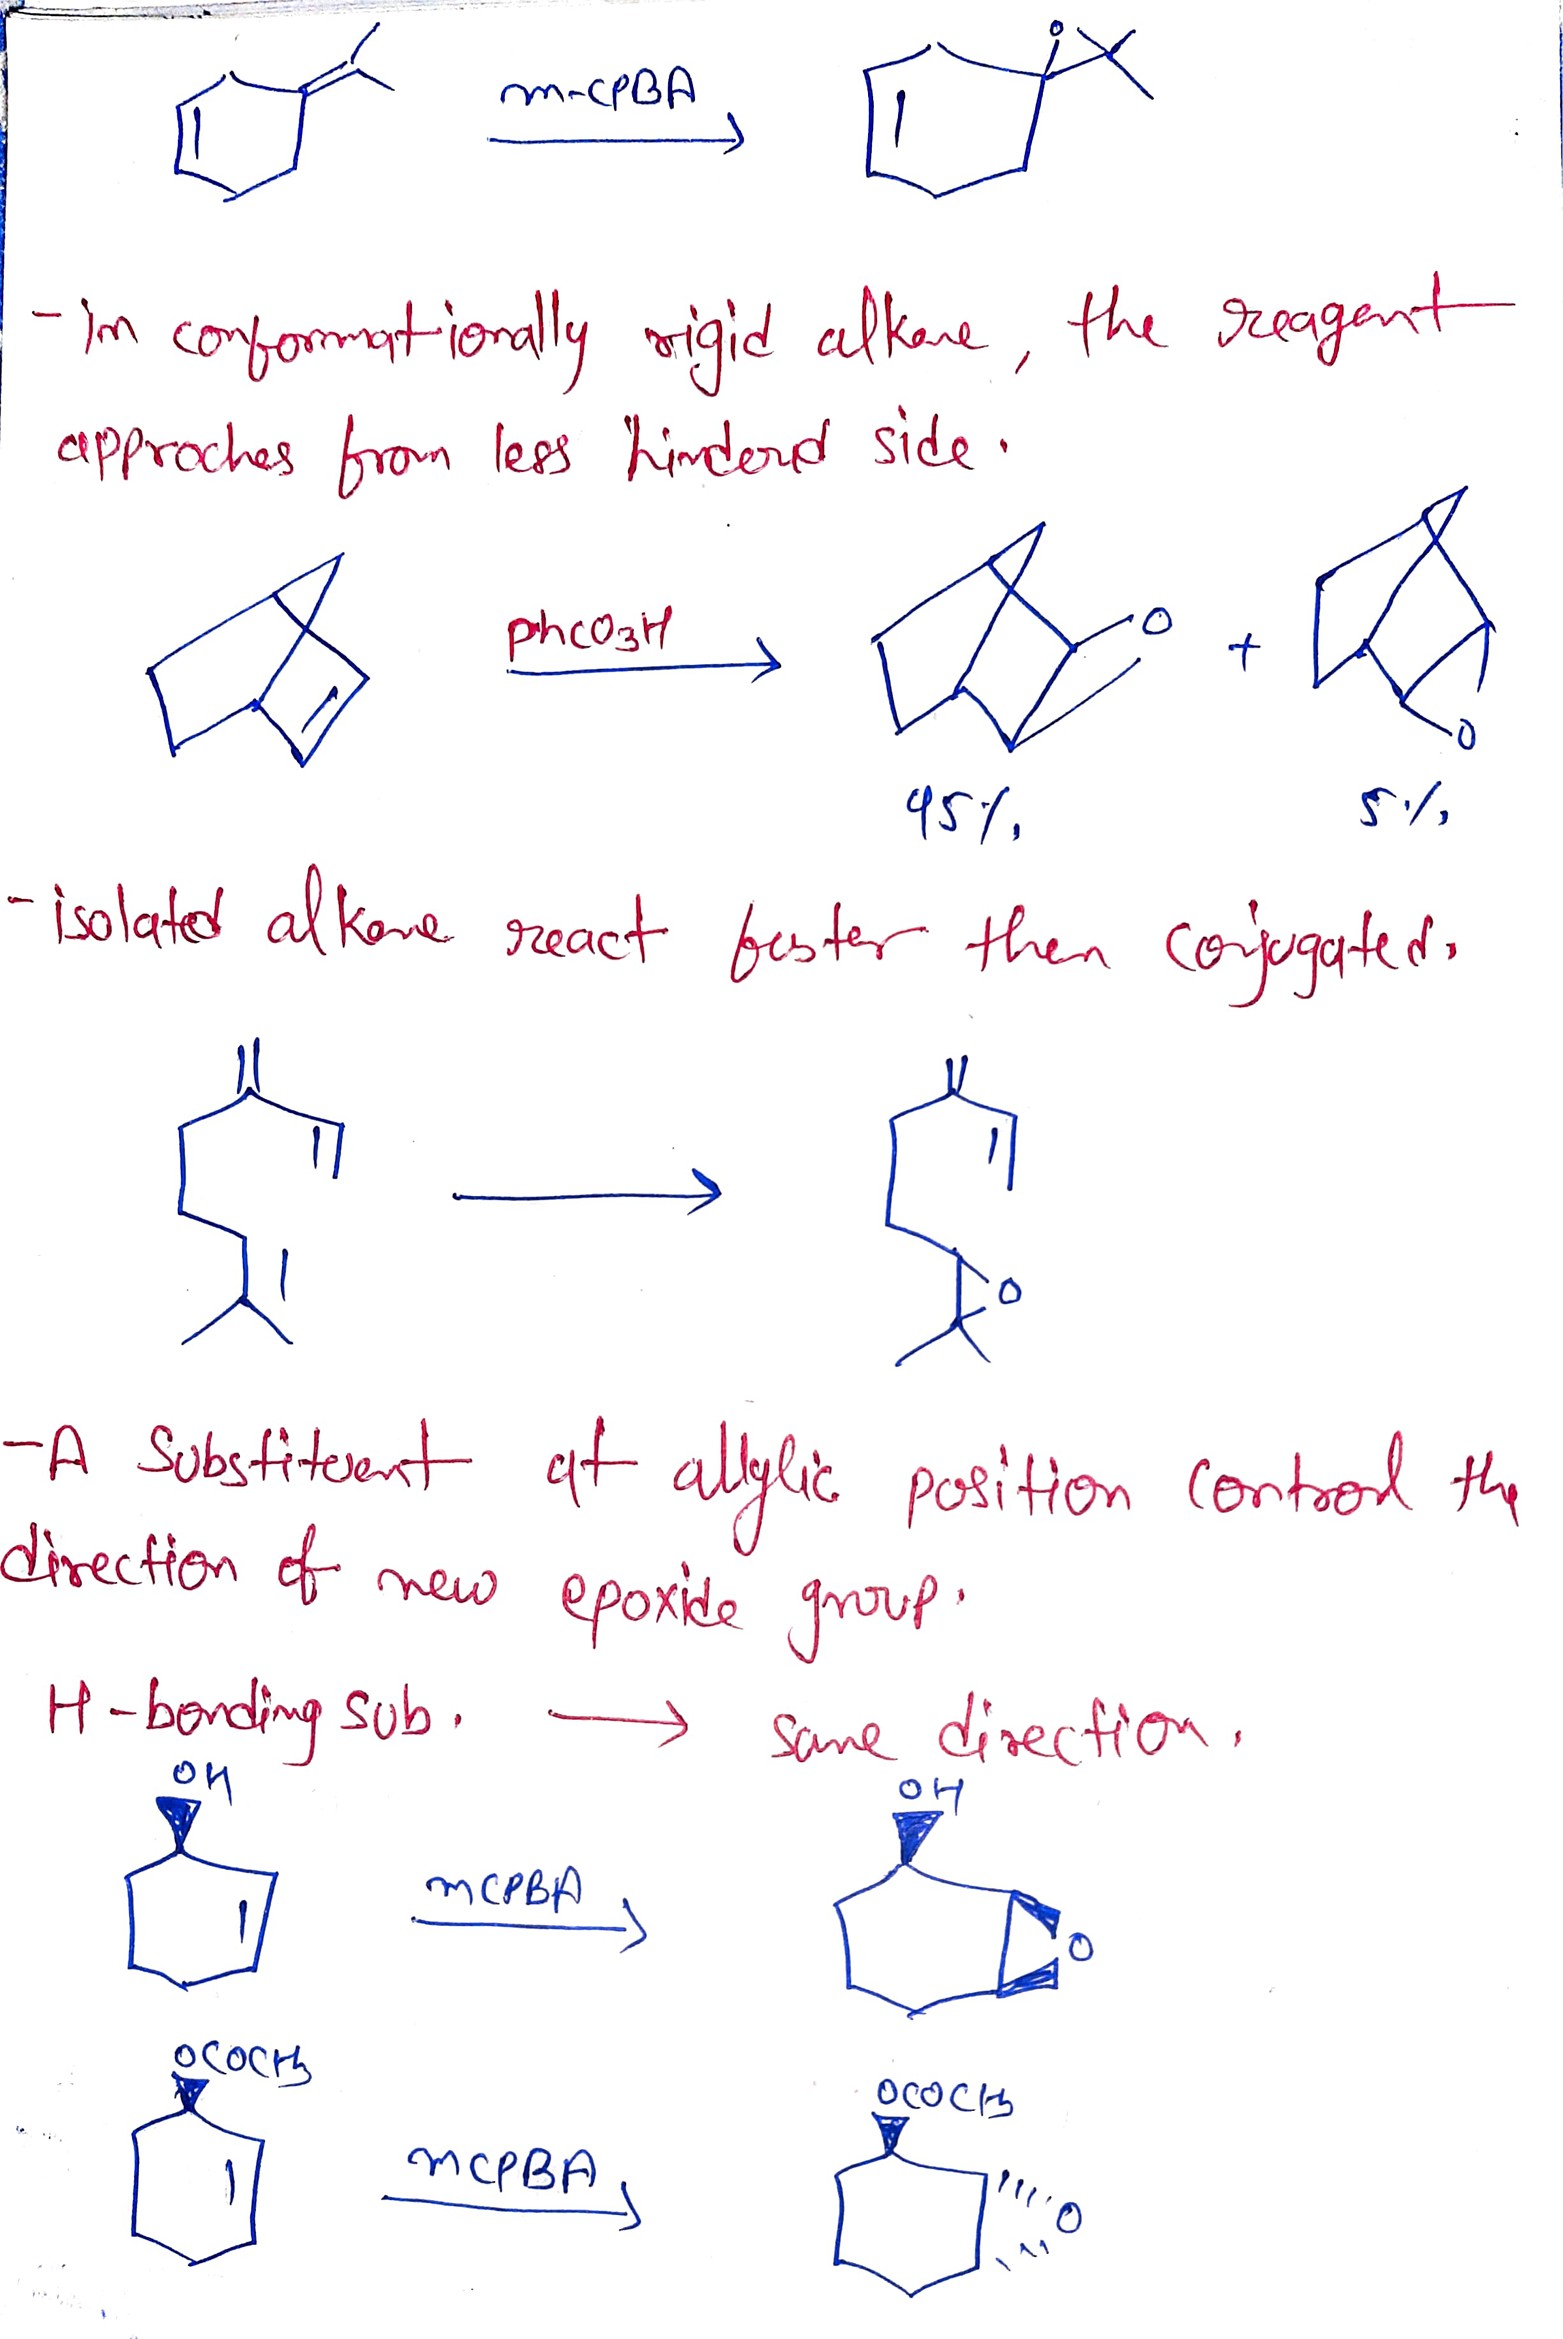 O
m-CPBA
- In conformationally rigid alkene, the reagent
approches from less hindered side.
PhCO3H
O
+
O
95%
5%
- isolated alkene react faster then conjugated.
O
- A Substituent at allylic position control the
direction of new epoxide group.
H-bonding sub. → same direction.
OH
OH
mCPBA
O
OCOCH3
OCOCH3
mCPBA
O